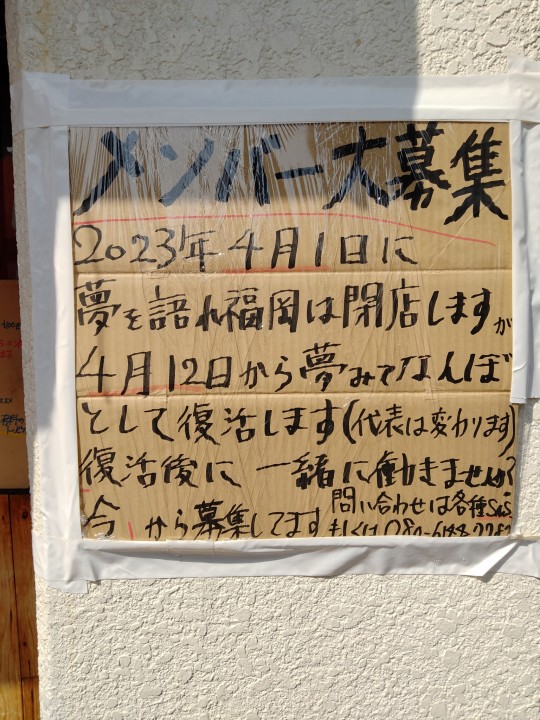 メンバー大募集
2023年4月1日に
夢を語れ福岡は閉店しますが
4月12日から夢みてなんぼ
として復活します(代表は変わります)
復活後に一緒に働きませんか?
今から募集してます
問い合わせは各種SNS
もしくは